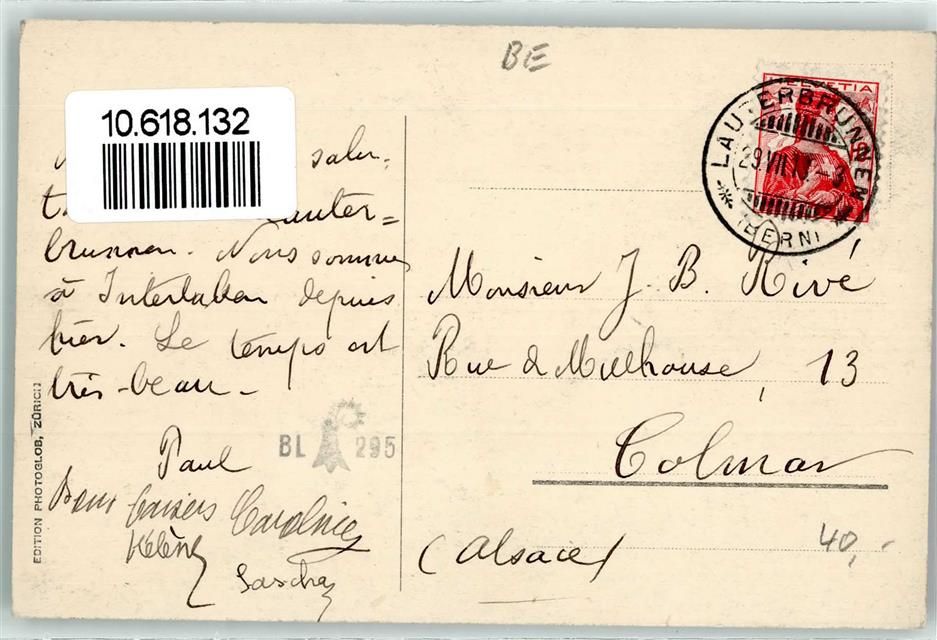 BE
10.618.132
HELVETIA
LAUTERBRUNNEN
29.VII.
(BERN)
salu-
Lauter=
brunnen. Nous sommes
à Interlaken depuis
hier. Le temps est
très-beau -
Paul
Bons baisers Caroline
Hélène
Sascha
EDITION PHOTOGLOB, ZÜRICH
BL 295
Monsieur J. B. Rivé
Rue de Mulhouse, 13
Colmar
(Alsace)
40,-